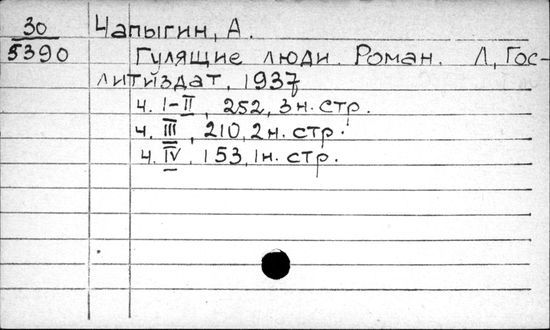 30 Чапыгин, А.
5390 Гулящие люди. Роман. Л, Гос-
литиздат, 1937
ч. I-II, 252, 3 н. стр.
ч. III, 210, 2 н. стр.
ч. IV, 153, 1 н. стр.